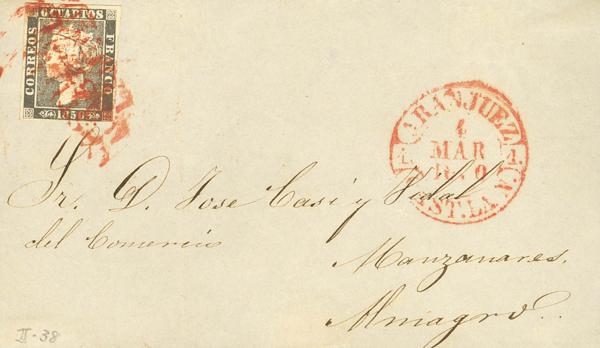 CORREOS
SEIS CUARTOS
FRANCO
1850
ARANJUEZ
4
MAR
1850
CAST. LA N.
Sr. D. Jose Casi y Vidal
del Comercio
Manzanares.
Almagro.
II-38